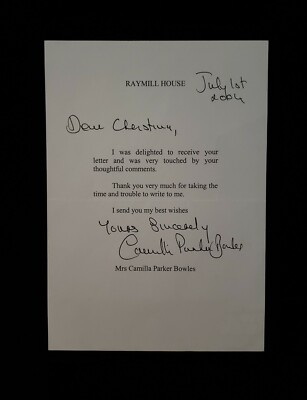 RAYMILL HOUSE
July 1st
2004
Dear Christina,
I was delighted to receive your
letter and was very touched by your
thoughtful comments.
Thank you very much for taking the
time and trouble to write to me.
I send you my best wishes
Yours Sincerely
Camilla Parker Bowles
Mrs Camilla Parker Bowles